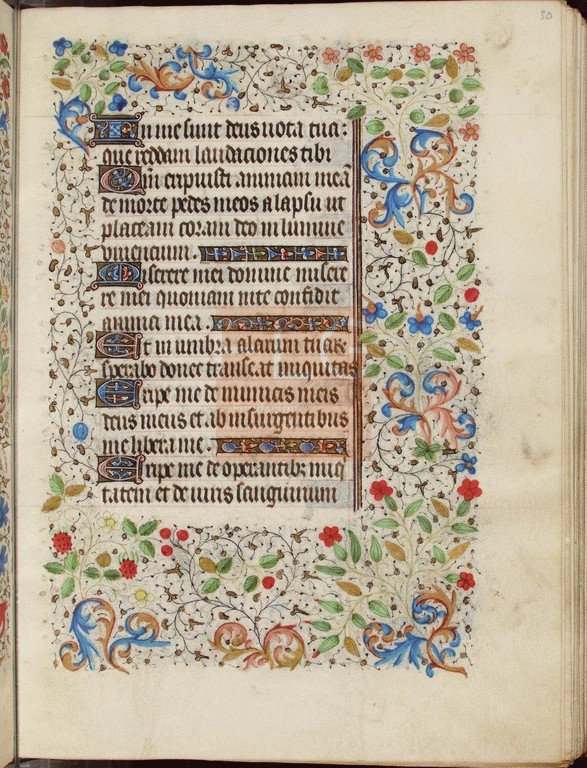 50
In me sunt deus uota tua:
que reddam laudaciones tibi
Qm̄ eripuisti animam meā
de morte pedes meos a lapsu ut
placeam coram deo in lumine
uiuencium.
Miserere mei domine misere
re mei quoniam in te confidit
anima mea.
Et in umbra alarum tuarꝝ
sperabo donec transeat iniquitas
Eripe me de inimicis meis
deus meus et ab insurgentibus
in me libera me.
Eripe me de operantibꝫ iniq̄
tatem et de uiris sanguinum